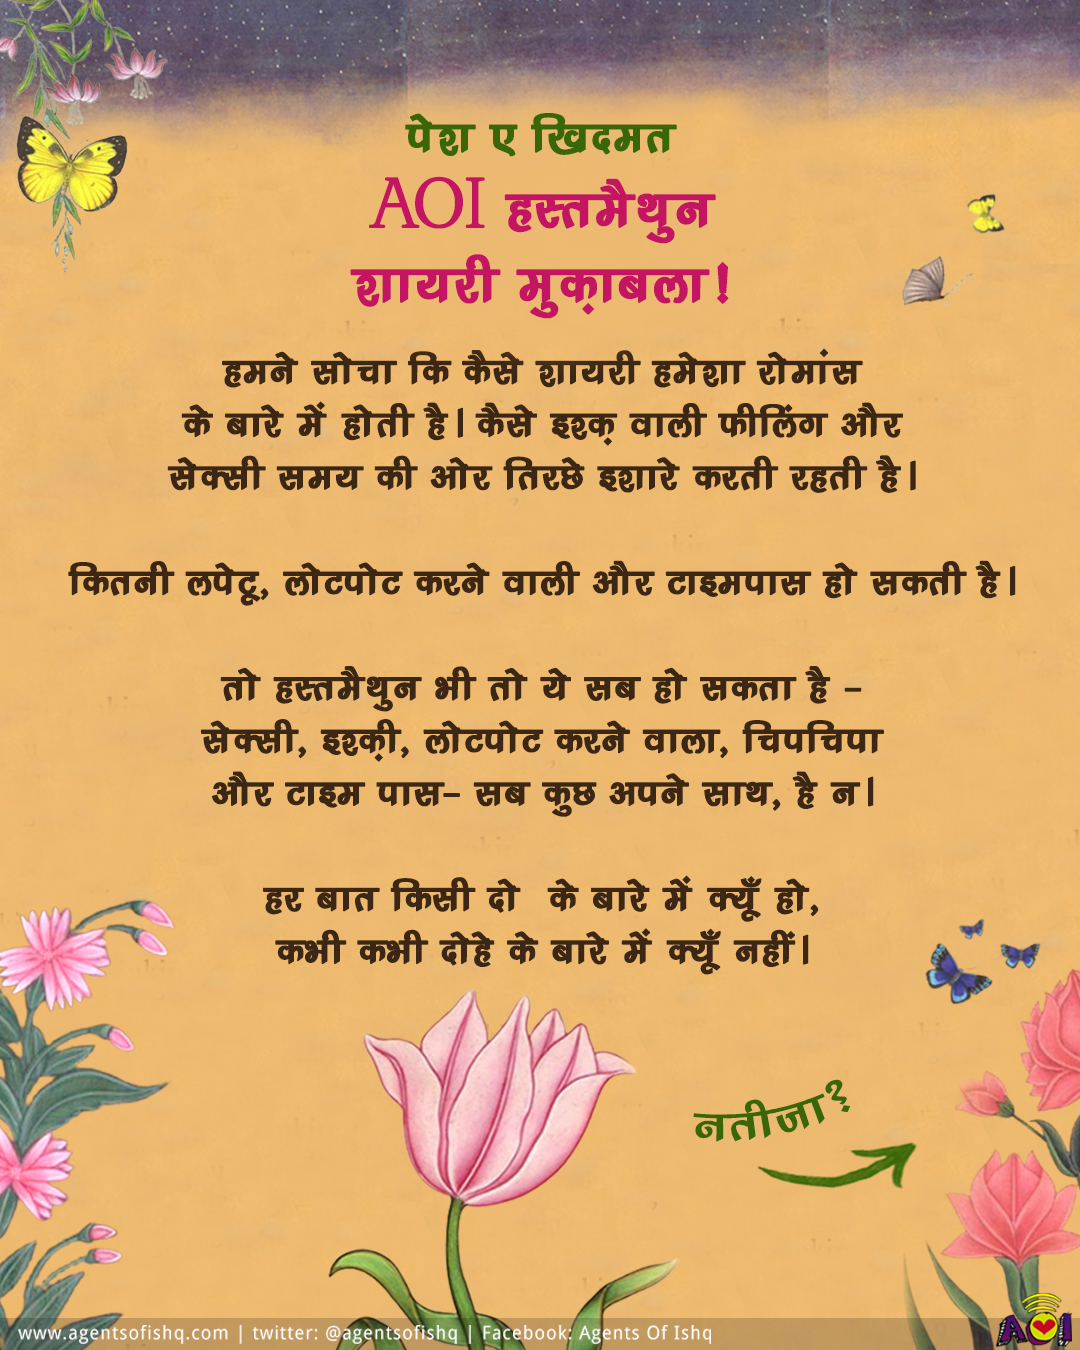 पेश ए खिदमत
AOI हस्तमैथुन
शायरी मुक़ाबला!
हमने सोचा कि कैसे शायरी हमेशा रोमांस
के बारे में होती है। कैसे इश्क़ वाली फीलिंग और
सेक्सी समय की ओर तिरछे इशारे करती रहती है।
कितनी लपेटू, लोटपोट करने वाली और टाइमपास हो सकती है।
तो हस्तमैथुन भी तो ये सब हो सकता है –
सेक्सी, इश्क़ी, लोटपोट करने वाला, चिपचिपा
और टाइम पास– सब कुछ अपने साथ, है न।
हर बात किसी दो के बारे में क्यूँ हो,
कभी कभी दोहे के बारे में क्यूँ नहीं।
नतीजा?
www.agentsofishq.com | twitter: @agentsofishq | Facebook: Agents Of Ishq
AOI